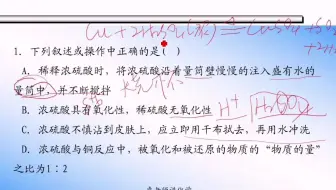 Cu + 2H₂SO₄(浓) ≜ CuSO₄
+2H
1. 下列叙述或操作中正确的是( )
A. 稀释浓硫酸时，将浓硫酸沿着量筒壁慢慢的注入盛有水的
量筒中，并不断搅拌
B. 浓硫酸具有氧化性，稀硫酸无氧化性 H⁺
C. 浓硫酸不慎沾到皮肤上，应立即用干布拭去，再用水冲洗
D. 浓硫酸与铜反应中，被氧化和被还原的物质的“物质的量”
之比为1：2